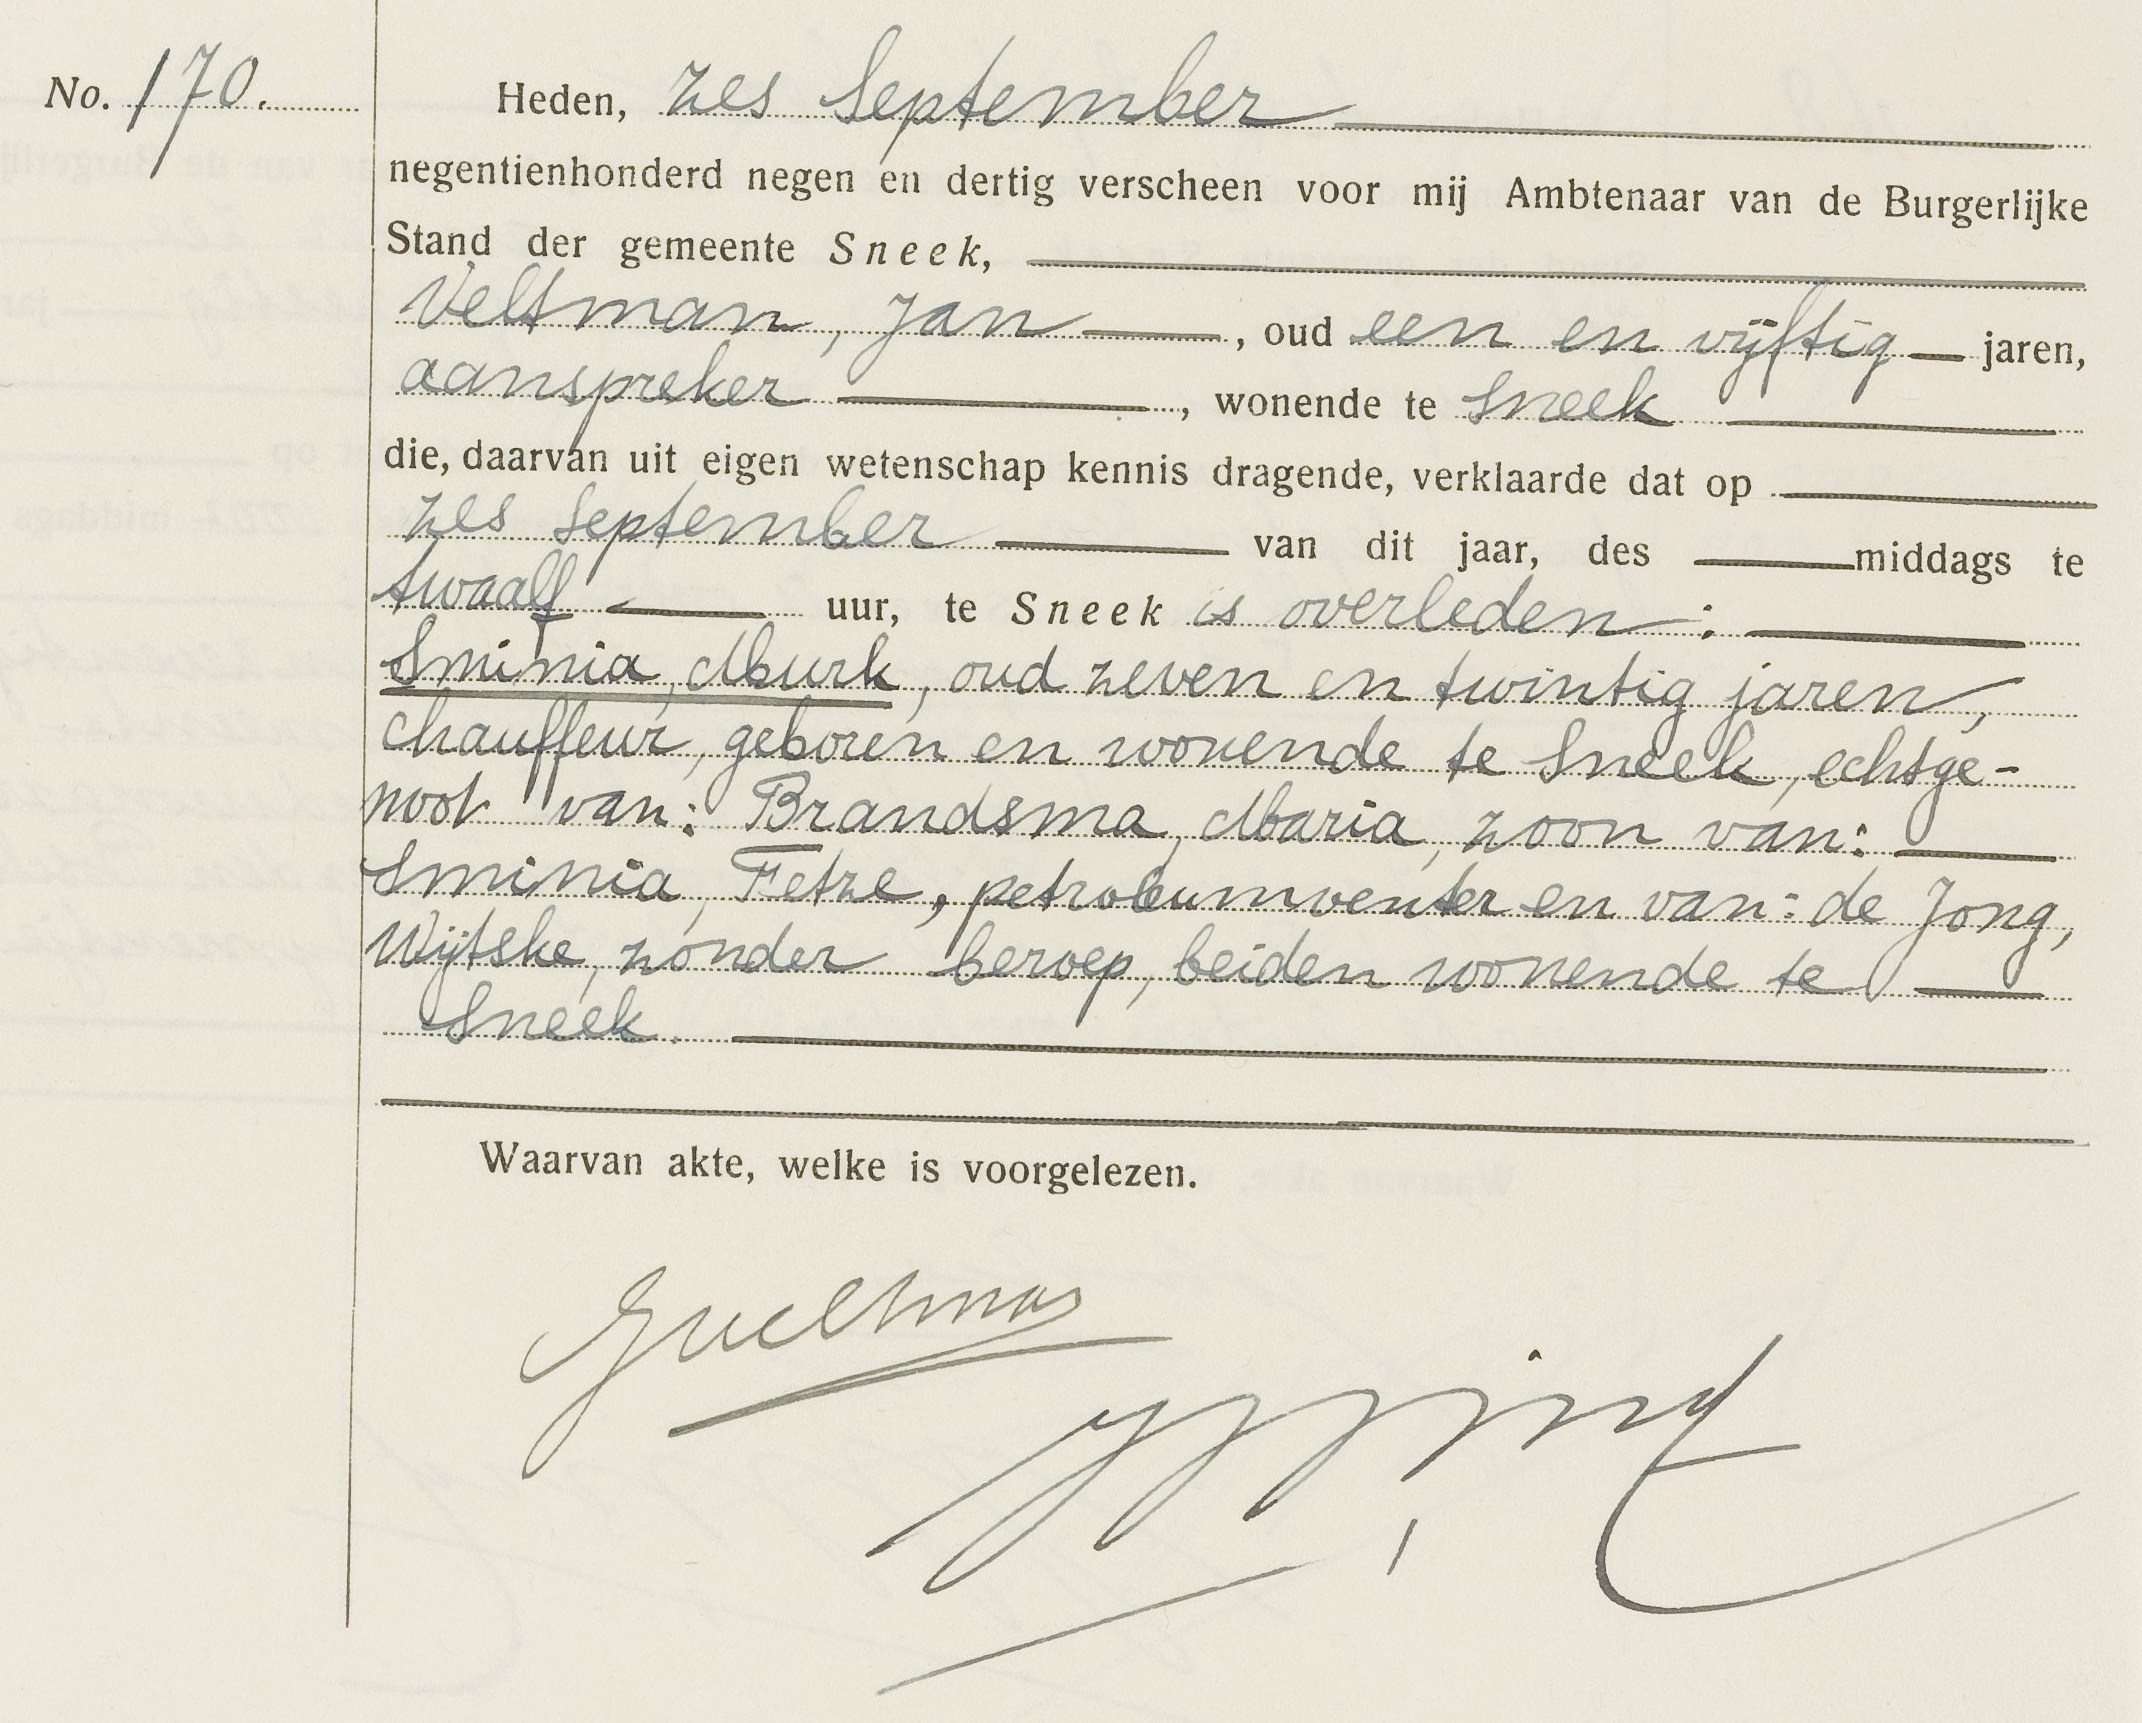 No. 170.
Heden, zes September
negentienhonderd negen en dertig verscheen voor mij Ambtenaar van de Burgerlijke
Stand der gemeente Sneek,
Veltman, Jan , oud een en vijftig jaren,
aanspreker , wonende te Sneek
die, daarvan uit eigen wetenschap kennis dragende, verklaarde dat op
zes September van dit jaar, des middags te
twaalf uur, te Sneek is overleden :
Sminia, Murk, oud zeven en twintig jaren,
chauffeur, geboren en wonende te Sneek, echtge-
noot van: Brandsma, Maria, zoon van:
Sminia, Fetze, petroleumventer en van: de Jong,
Wijtske, zonder beroep, beiden wonende te
Sneek.
Waarvan akte, welke is voorgelezen.
JVeltman